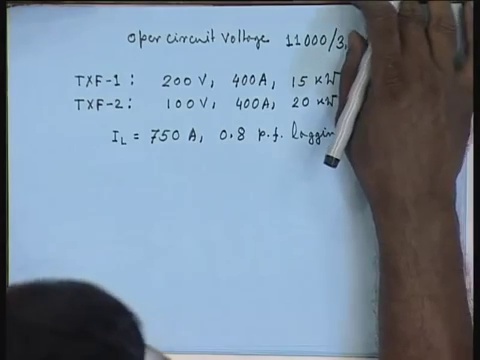 open circuit voltage 11000/3,
TXF-1: 200 V, 400A, 15 KW
TXF-2: 100 V, 400A, 20 KW
IL = 750 A, 0.8 p.f. laggin